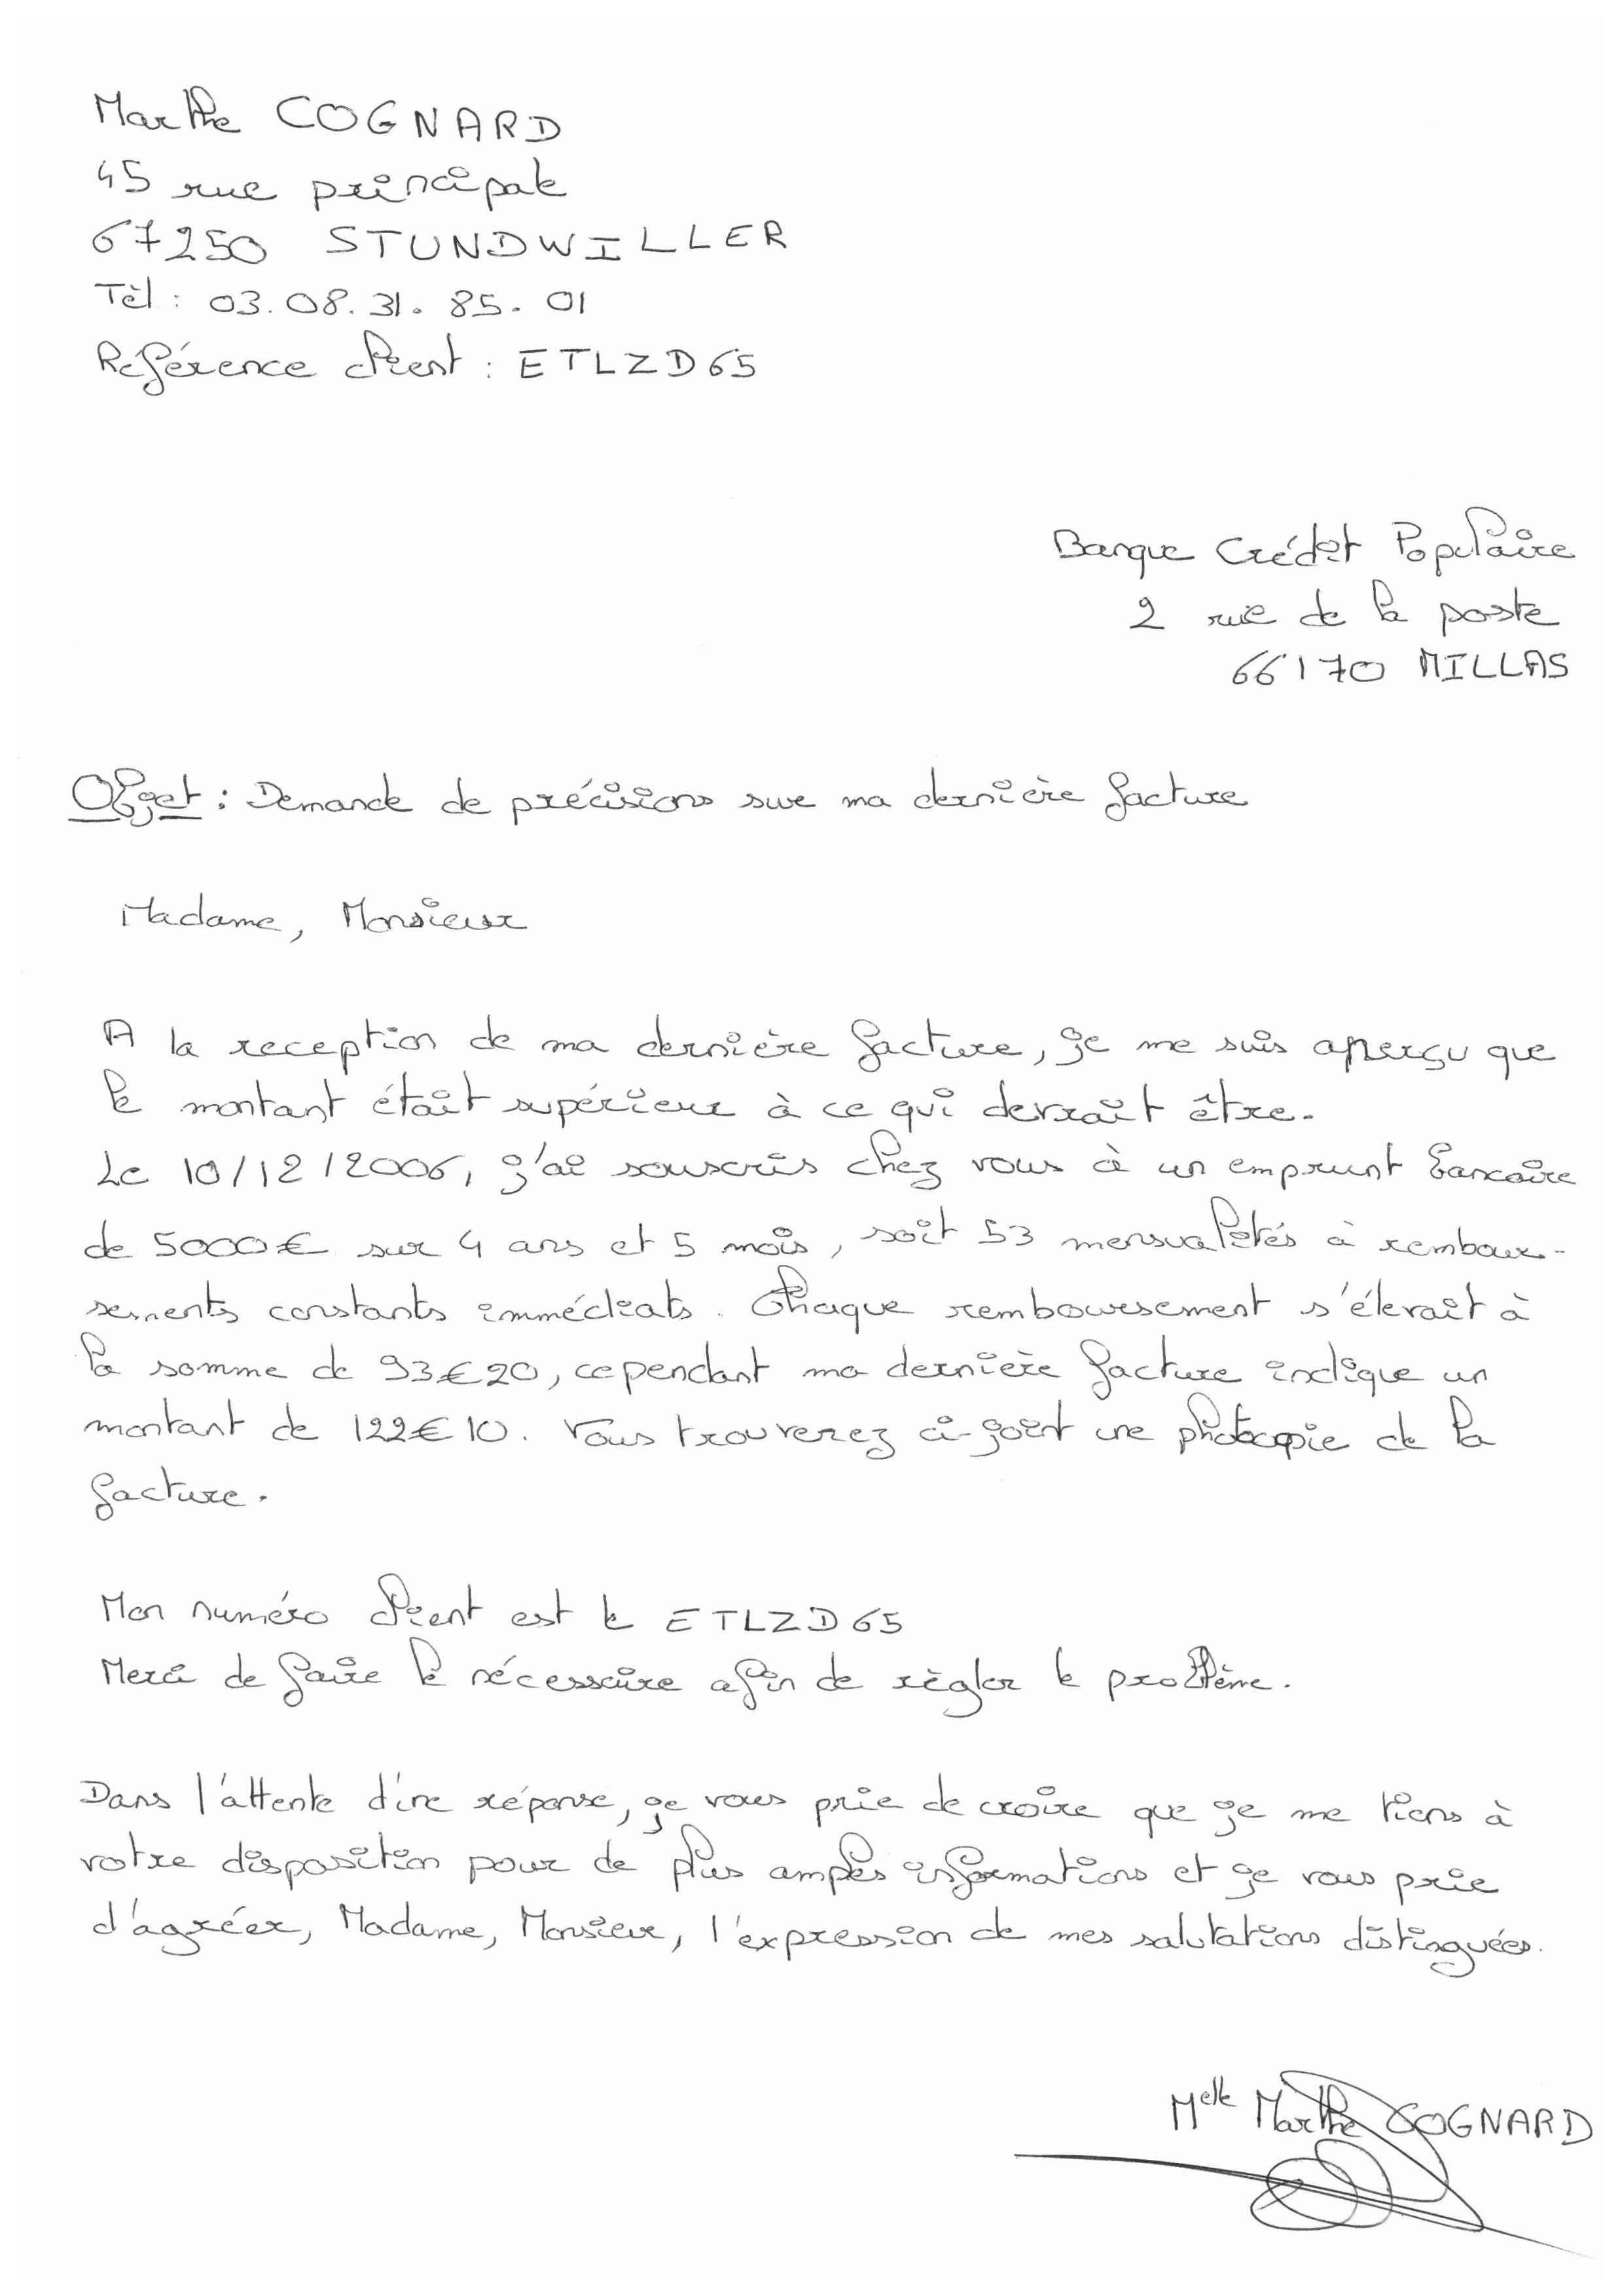 Marthe COGNARD
45 rue principale
67250 STUNDWILLER
Tèl : 03.08.31.85.01
Reférence client : ETLZD65
Banque Crédit Populaire
2 rue de la poste
66170 MILLAS
Objet : Demande de précisions sur ma dernière facture
Madame, Monsieur
A la reception de ma dernière facture, je me suis aperçu que
le montant était supérieur à ce qui devrait être.
Le 10/12/2006, j'ai souscris chez vous à un emprunt bancaire
de 5000€ sur 4 ans et 5 mois, soit 53 mensualités à rembour-
sements constants immédiats. Chaque remboursement s'élevait à
la somme de 93€20, cependant ma dernière facture indique un
montant de 122€10. Vous trouverez ci-joint une photocopie de la
facture.
Mon numéro client est le ETLZD65
Merci de faire le nécessaire afin de règler le problème.
Dans l'attente d'une réponse, je vous prie de croire que je me tiens à
votre disposition pour de plus amples informations et je vous prie
d'agréer, Madame, Monsieur, l'expression de mes salutations distinguées.
Melle Marthe COGNARD